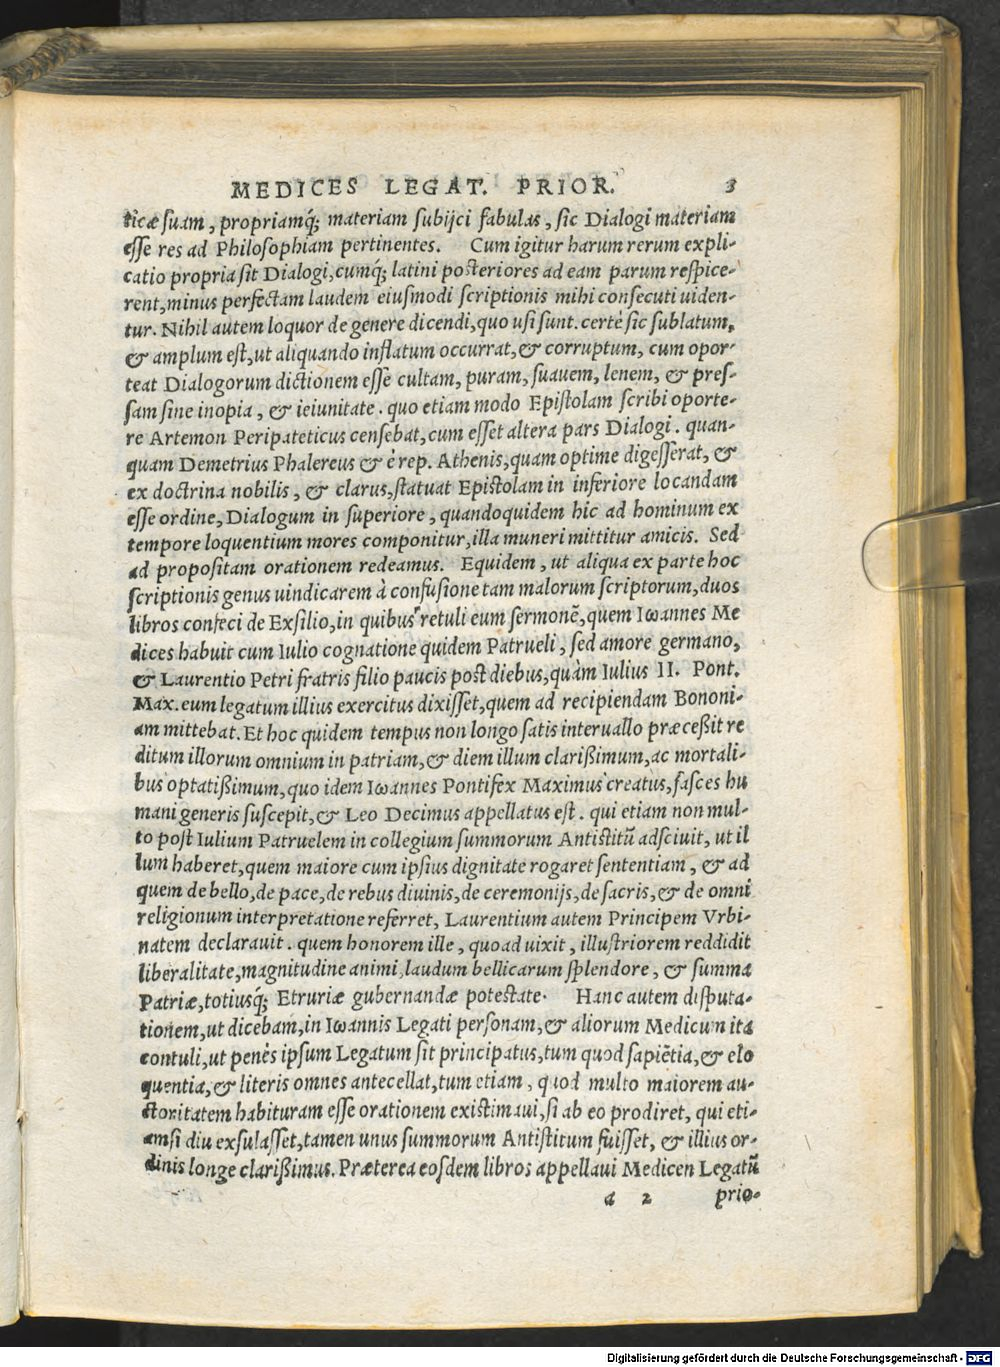 MEDICES LEGAT. PRIOR. 3
ticæ suam, propriamq́; materiam subijci fabulas, sic Dialogi materiam
esse res ad Philosophiam pertinentes. Cum igitur harum rerum expli-
catio propria sit Dialogi, cumq́; latini posteriores ad eam parum respice-
rent, minus perfectam laudem eiusmodi scriptionis mihi consecuti uiden-
tur. Nihil autem loquor de genere dicendi, quo usi sunt. certè sic sublatum,
& amplum est, ut aliquando inflatum occurrat, & corruptum, cum opor-
teat Dialogorum dictionem esse cultam, puram, suauem, lenem, & pres-
sam sine inopia, & ieiunitate. quo etiam modo Epistolam scribi oporte-
re Artemon Peripateticus censebat, cum esset altera pars Dialogi. quan-
quam Demetrius Phalereus & è rep. Athenis, quam optime digesserat, &
ex doctrina nobilis, & clarus, statuat Epistolam in inferiore locandam
esse ordine, Dialogum in superiore, quandoquidem hic ad hominum ex
tempore loquentium mores componitur, illa muneri mittitur amicis. Sed
ad propositam orationem redeamus. Equidem, ut aliqua ex parte hoc
scriptionis genus uindicarem à confusione tam malorum scriptorum, duos
libros confeci de Exsilio, in quibus retuli eum sermonē, quem Iωannes Me
dices habuit cum Iulio cognatione quidem Patrueli, sed amore germano,
& Laurentio Petri fratris filio paucis post diebus, quàm Iulius II. Pont.
Max. eum legatum illius exercitus dixisset, quem ad recipiendam Bononi-
am mittebat. Et hoc quidem tempus non longo satis interuallo præceßit re
ditum illorum omnium in patriam, & diem illum clarißimum, ac mortali-
bus optatißimum, quo idem Iωannes Pontifex Maximus creatus, fasces hu
mani generis suscepit, & Leo Decimus appellatus est. qui etiam non mul-
to post Iulium Patruelem in collegium summorum Antistitū adsciuit, ut il
lum haberet, quem maiore cum ipsius dignitate rogaret sententiam, & ad
quem de bello, de pace, de rebus diuinis, de ceremonijs, de sacris, & de omni
religionum interpretatione referret, Laurentium autem Principem Vrbi-
natem declarauit. quem honorem ille, quoad uixit, illustriorem reddidit
liberalitate, magnitudine animi, laudum bellicarum splendore, & summa
Patriæ, totiusq́; Etruriæ gubernandæ potestate. Hanc autem disputa-
tionem, ut dicebam, in Iωannis Legati personam, & aliorum Medicum ita
contuli, ut penès ipsum Legatum sit principatus, tum quod sapiētia, & elo
quentia, & literis omnes antecellat, tum etiam, quod multo maiorem au-
ctoritatem habituram esse orationem existimaui, si ab eo prodiret, qui eti-
amsi diu exsulasset, tamen unus summorum Antistitum fuisset, & illius or-
dinis longe clarißimus. Præterea eosdem libros appellaui Medicen Legatū
a 2 prio-
Digitalisierung gefördert durch die Deutsche Forschungsgemeinschaft - DFG